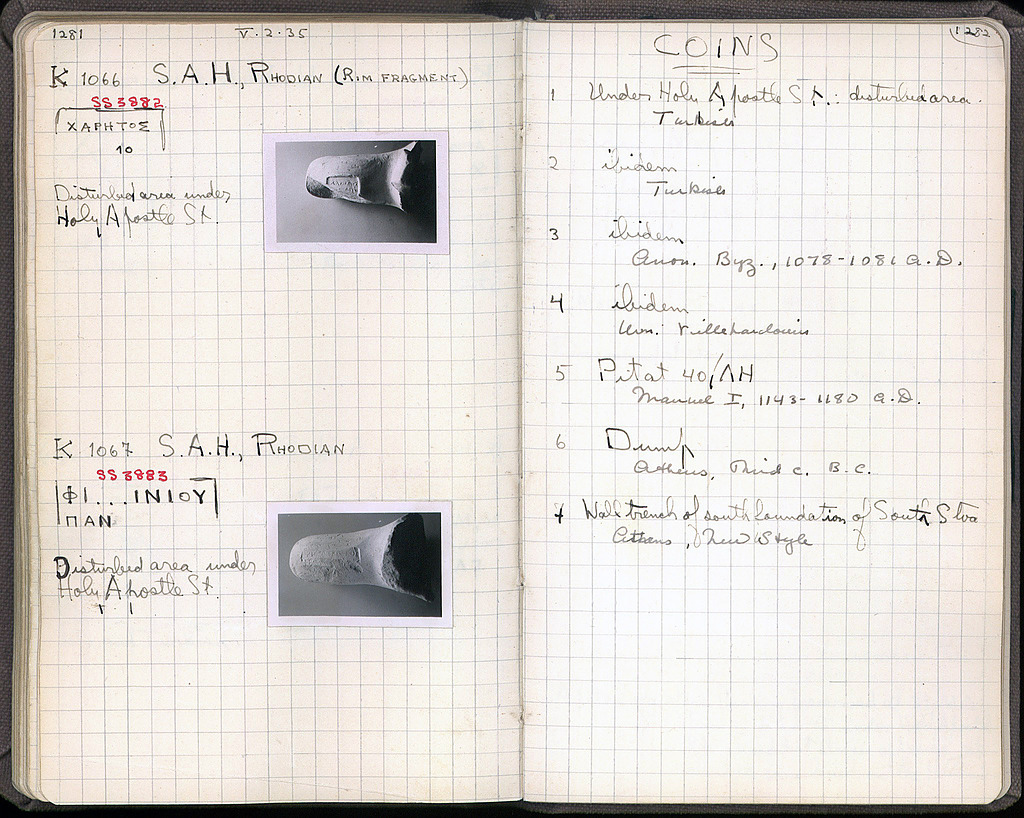 1281
V·2·35
K 1066 S.A.H., RHODIAN (RIM FRAGMENT)
SS 3882
ΧΑΡΗΤΟΣ
10
Disturbed area under
Holy Apostle St.
K 1067 S.A.H., RHODIAN
SS 3883
ΦΙ...ΙΝΙΟΥ
ΠΑΝ
Disturbed area under
Holy Apostle St.
1282
COINS
1 Under Holy Apostle St.: disturbed area.
Turkish
2 ibidem
Turkish
3 ibidem
Anon. Byz., 1078-1081 A.D.
4 ibidem
Villehardouin
5 Pit at 40/ΛΗ
Manuel I, 1143-1180 A.D.
6 Dump
Athens, Third c. B.C.
7 Wall trench of south foundation of South Stoa
Athens, New Style